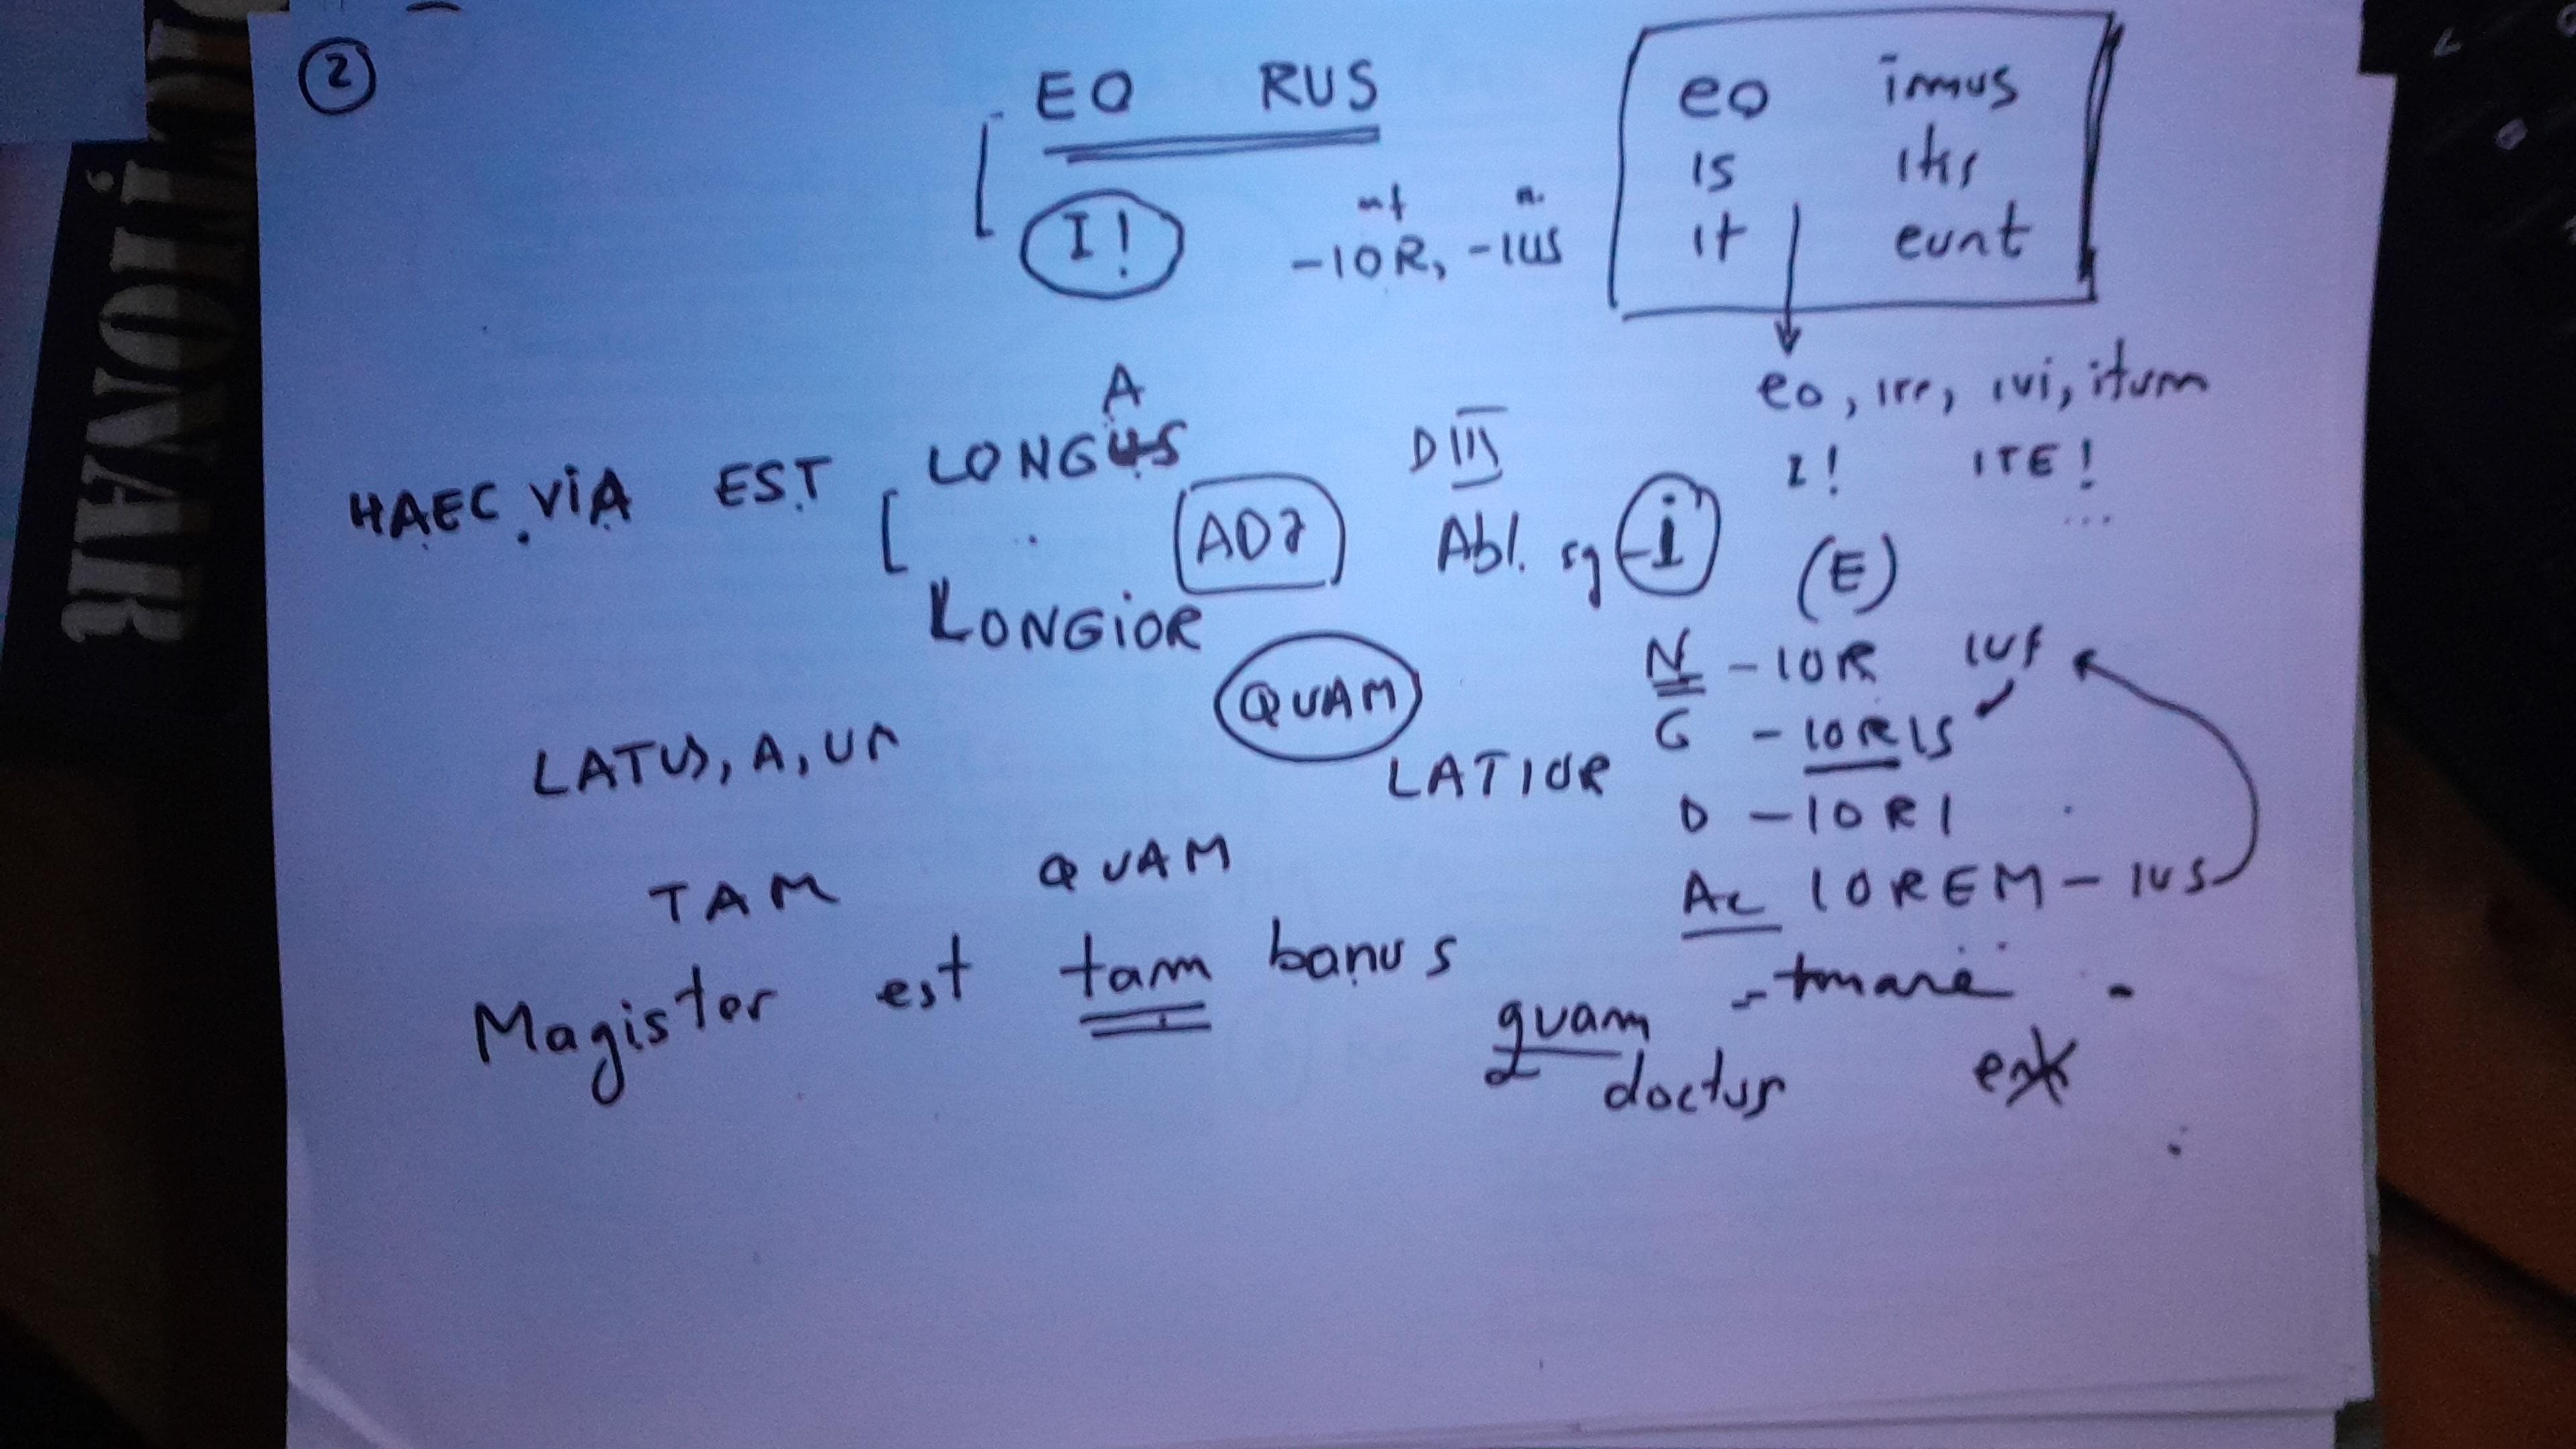 2
EO RUS
I!
mf n.
-IOR, -IUS
eo imus
is itis
it eunt
eo, ire, ivi, itum
I! ITE!
...
A
HAEC VIA EST LONGUS
ADJ
LONGIOR
D III
Abl. sg -i
(E)
QUAM
N -IOR IUS
G -IORIS
D -IORI
Ac IOREM - IUS
LATUS, A, UM
LATIOR
TAM QUAM
Magister est tam bonus
quam
doctus
est
DICȚIONAR